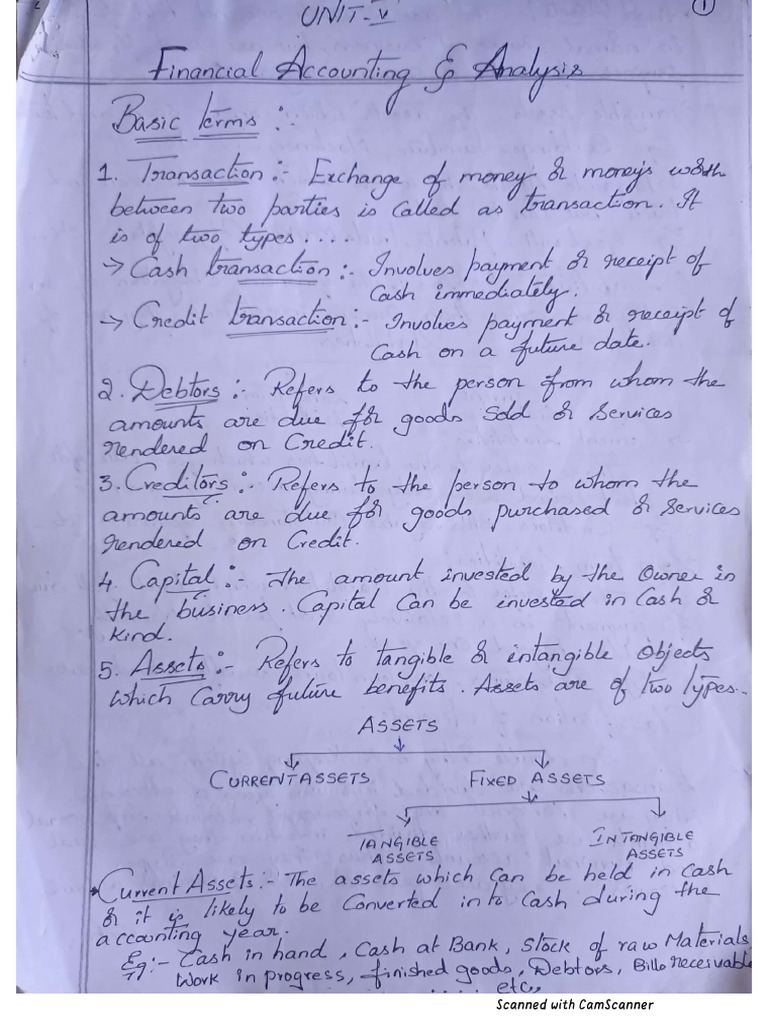 UNIT-V
1
Financial Accounting & Analysis
Basic terms :-
1. Transaction :- Exchange of money or money's worth
between two parties is called as transaction. It
is of two types....
→ Cash transaction :- Involves payment or receipt of
Cash immediately.
→ Credit transaction :- Involves payment or receipt of
Cash on a future date.
2. Debtors :- Refers to the person from whom the
amounts are due for goods sold or services
rendered on Credit.
3. Creditors :- Refers to the person to whom the
amounts are due for goods purchased or services
rendered on Credit.
4. Capital :- The amount invested by the Owner in
the business. Capital Can be invested in Cash or
kind.
5. Assets :- Refers to tangible or intangible Objects
which Carry future benefits. Assets are of two types..
ASSETS
CURRENT ASSETS FIXED ASSETS
TANGIBLE INTANGIBLE
ASSETS ASSETS
Current Assets :- The assets which Can be held in Cash
or it is likely to be Converted in to Cash during the
accounting year.
Eg :- Cash in hand, Cash at Bank, Stock of raw Materials
Work in progress, finished goods, Debtors, Bills receivable
..... etc,
Scanned with CamScanner